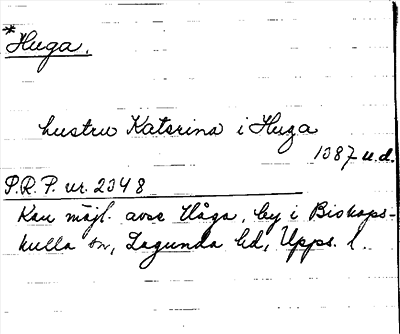 *Huga.
hustru Katerina i Huga
1387 u.d.
P.R.P. nr. 2348
Kan möjl. avse Håga, by i Biskops-
kulla sn, Lagunda hd, Upps. l.